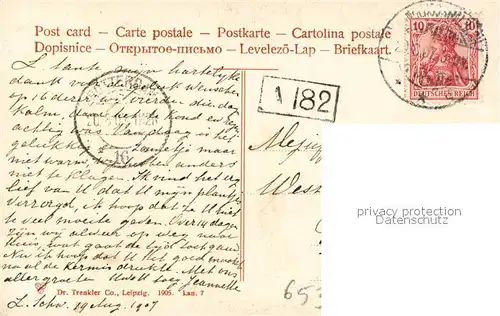 Post card – Carte postale – Postkarte – Cartolina postale
Dopisnice – Открытое-письмо – Levelező-Lap – Briefkaart.
L tante mijn hartelijke
dank voor
op 16 dezer wij vierden die dag
kalm, daar het koud en
achtig was. Vandaag is het
gelukkig een zonnetje maar
niet warm, wij hebben anders
niet te klagen. Ik vind het erg
lief van U dat U mijn
verzorgd, ik hoop dat ze U niet
te veel moeite gaven. Over 14 dagen
zijn wij alweer op weg naar
huis, wat gaat de tijd toch gauw
Nu ik hoop dat U het goed maakt
no al de kermis drukte. Met ons
aller groeten Uw
Jeannette
L. Schw. 19 Aug. 1907
A 182
Mejuf
West
10 10
DEUTSCHES REICH
16
privacy protection
Datenschutz
653
Dr. Trenkler Co., Leipzig. 1905. Lan. 7